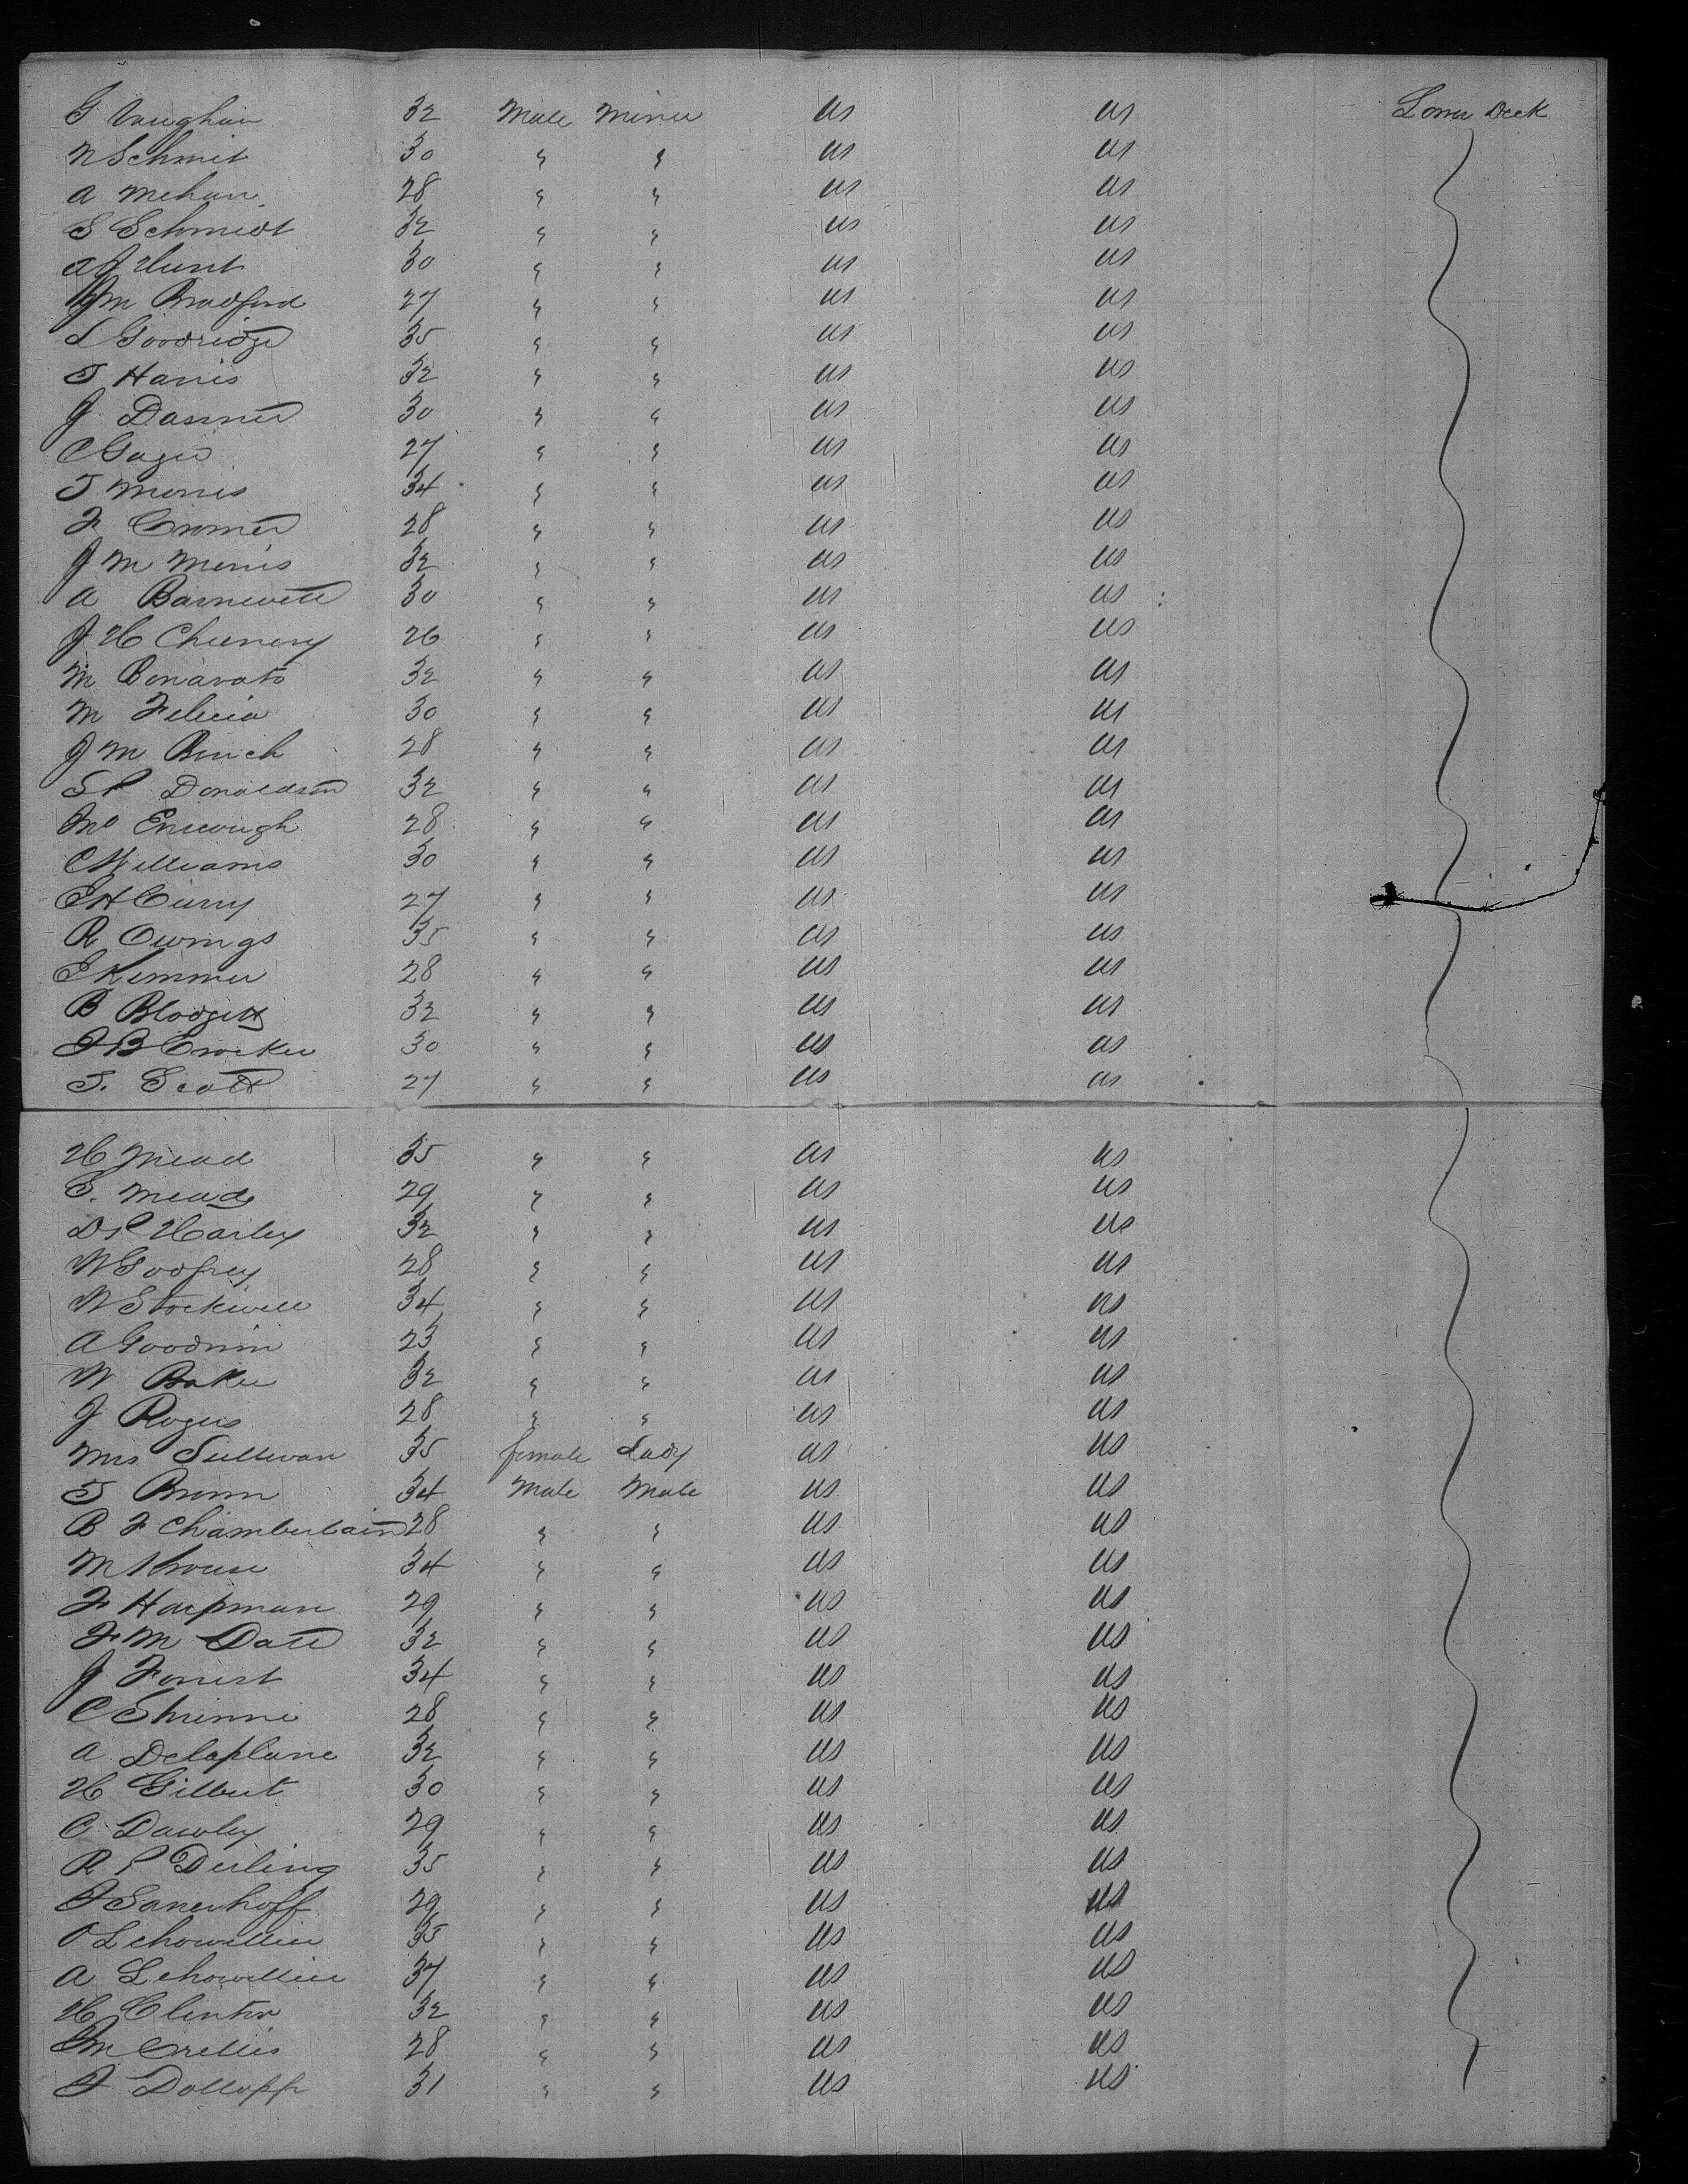 G Vaughan 32 Male Miner US US Lower Deck
N Schmit 30 " " US US
A Mehan 28 " " US US
S Schmidt 32 " " US US
A J Hunt 30 " " US US
J M Bradford 27 " " US US
L Goodridge 35 " " US US
T Harris 32 " " US US
J Dasmer 30 " " US US
C Gager 27 " " US US
T Morris 34 " " US US
F Cromer 28 " " US US
J M Morris 32 " " US US
A Barnewell 30 " " US US
J H Cheenery 26 " " US US
M Bonavato 32 " " US US
M Felicia 30 " " US US
J M Burch 28 " " US US
S P Donaldson 32 " " US US
28 " " US US
C Williams 30 " " US US
E H Curry 27 " " US US
R Owings 35 " " US US
E Kemmer 28 " " US US
B Blodgett 32 " " US US
J B Crocker 30 " " US US
T. Scott 27 " " US US
H Mead 35 " " US US
E. Meade 29 " " US US
D P Harley 32 " " US US
W Godfrey 28 " " US US
W Stockwell 34 " " US US
A Goodwin 23 " " US US
W Baker 32 " " US US
J Rogers 28 " " US US
Mrs Sullivan 35 female Lady US US
T Brown 34 Male Male US US
B F Chamberlain 28 " " US US
M Krouse 34 " " US US
F Harpman 29 " " US US
F M Date 32 " " US US
J Forrest 34 " " US US
C Shinne 28 " " US US
A Delaplane 32 " " US US
H Gilbert 30 " " US US
C Dawley 29 " " US US
R P Derling 35 " " US US
J Sanerhoff 29 " " US US
O Lehowillier 35 " " US US
A Lehowillier 37 " " US US
H Clinton 32 " " US US
M Crellis 28 " " US US
J Dollopp 31 " " US US